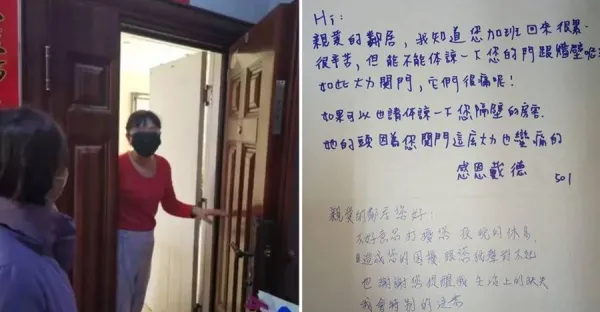 Hi:
親愛的鄰居，我知道您加班回來很累、
很辛苦，但能不能体諒一下您的門跟牆壁呢？
如此大力関門，它們很痛呢！
如果可以也請体諒一下您隔壁的房客
她的頭因為您関門這麼大力也蠻痛的
感恩戴德
501
親愛的鄰居您好：
不好意思打擾您 夜晚的休息，
造成您的困擾 跟您說聲對不起
也謝謝您提醒我 生活上的缺失
我會特別的注意